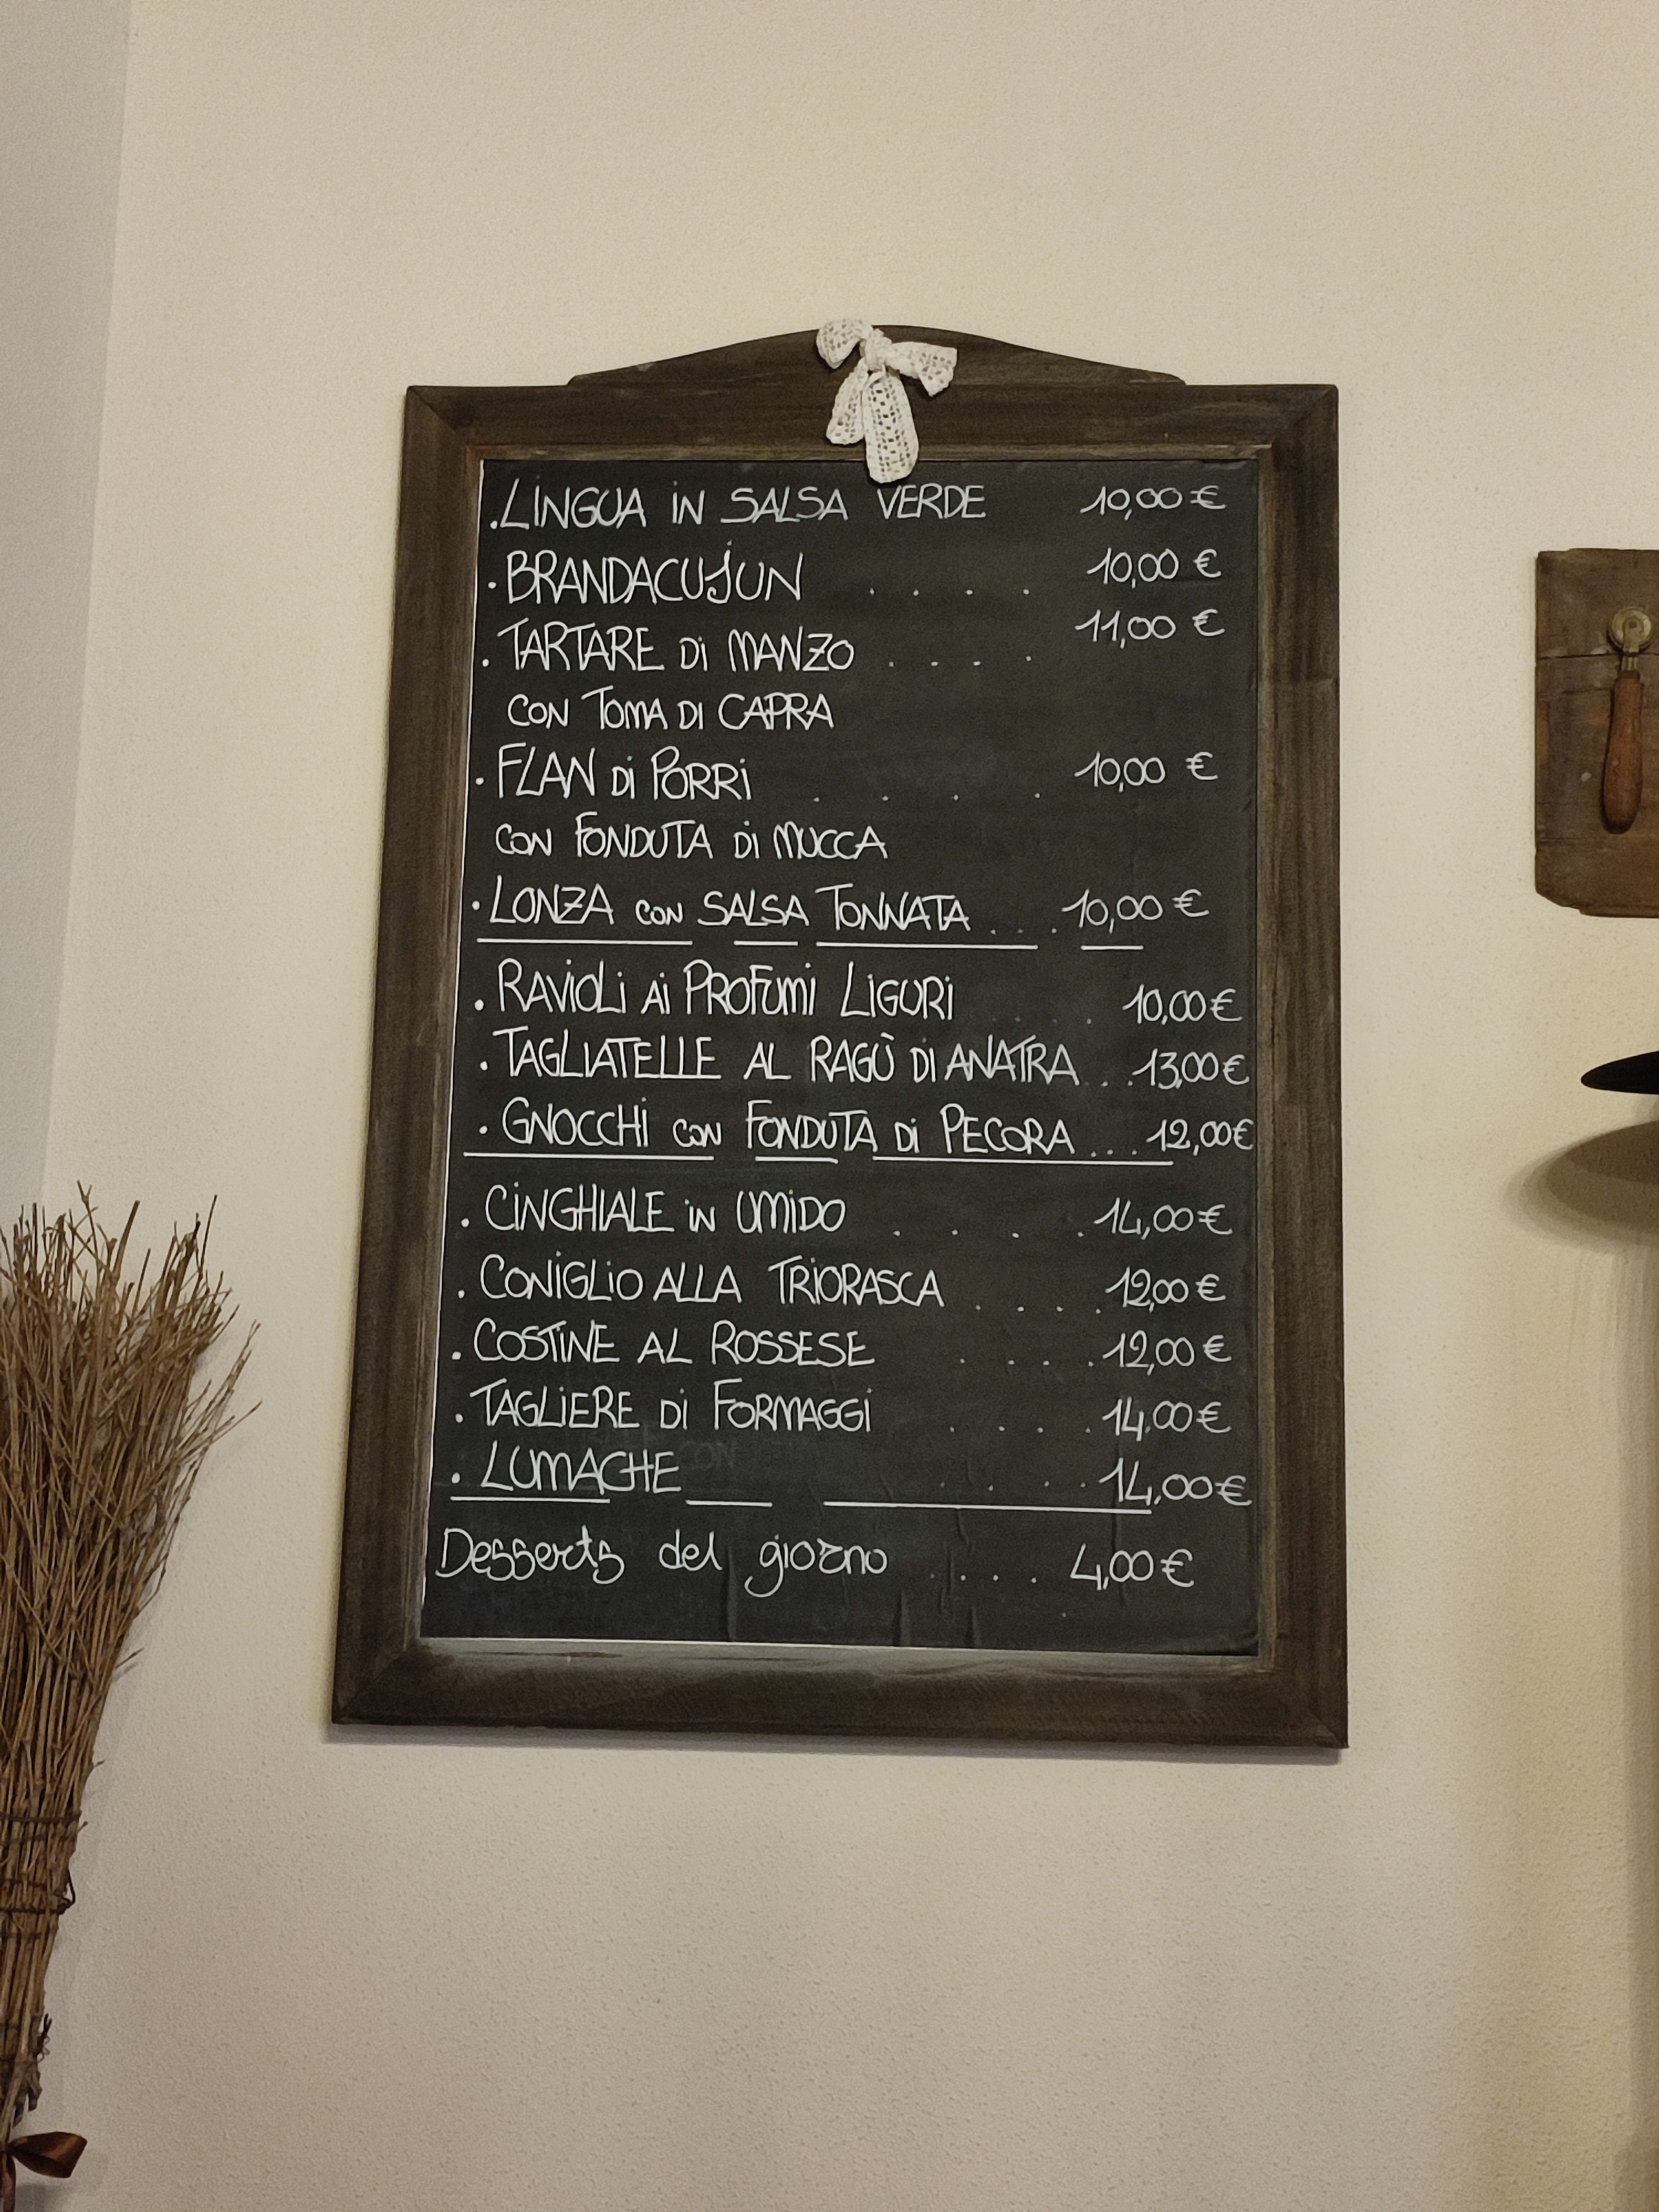 .LINGUA IN SALSA VERDE 10,00 €
. BRANDACUJUN .... 10,00 €
. TARTARE DI MANZO .... 11,00 €
CON TOMA DI CAPRA
. FLAN DI PORRI .... 10,00 €
CON FONDUTA DI MUCCA
. LONZA CON SALSA TONNATA ... 10,00 €
. RAVIOLI AI PROFUMI LIGURI .... 10,00 €
. TAGLIATELLE AL RAGÙ DI ANATRA ... 13,00 €
. GNOCCHI CON FONDUTA DI PECORA ... 12,00 €
. CINGHIALE IN UMIDO .... 14,00 €
. CONIGLIO ALLA TRIORASCA .... 12,00 €
. COSTINE AL ROSSESE .... 12,00 €
. TAGLIERE DI FORMAGGI .... 14,00 €
. LUMACHE .... 14,00 €
Desserts del giorno .... 4,00 €